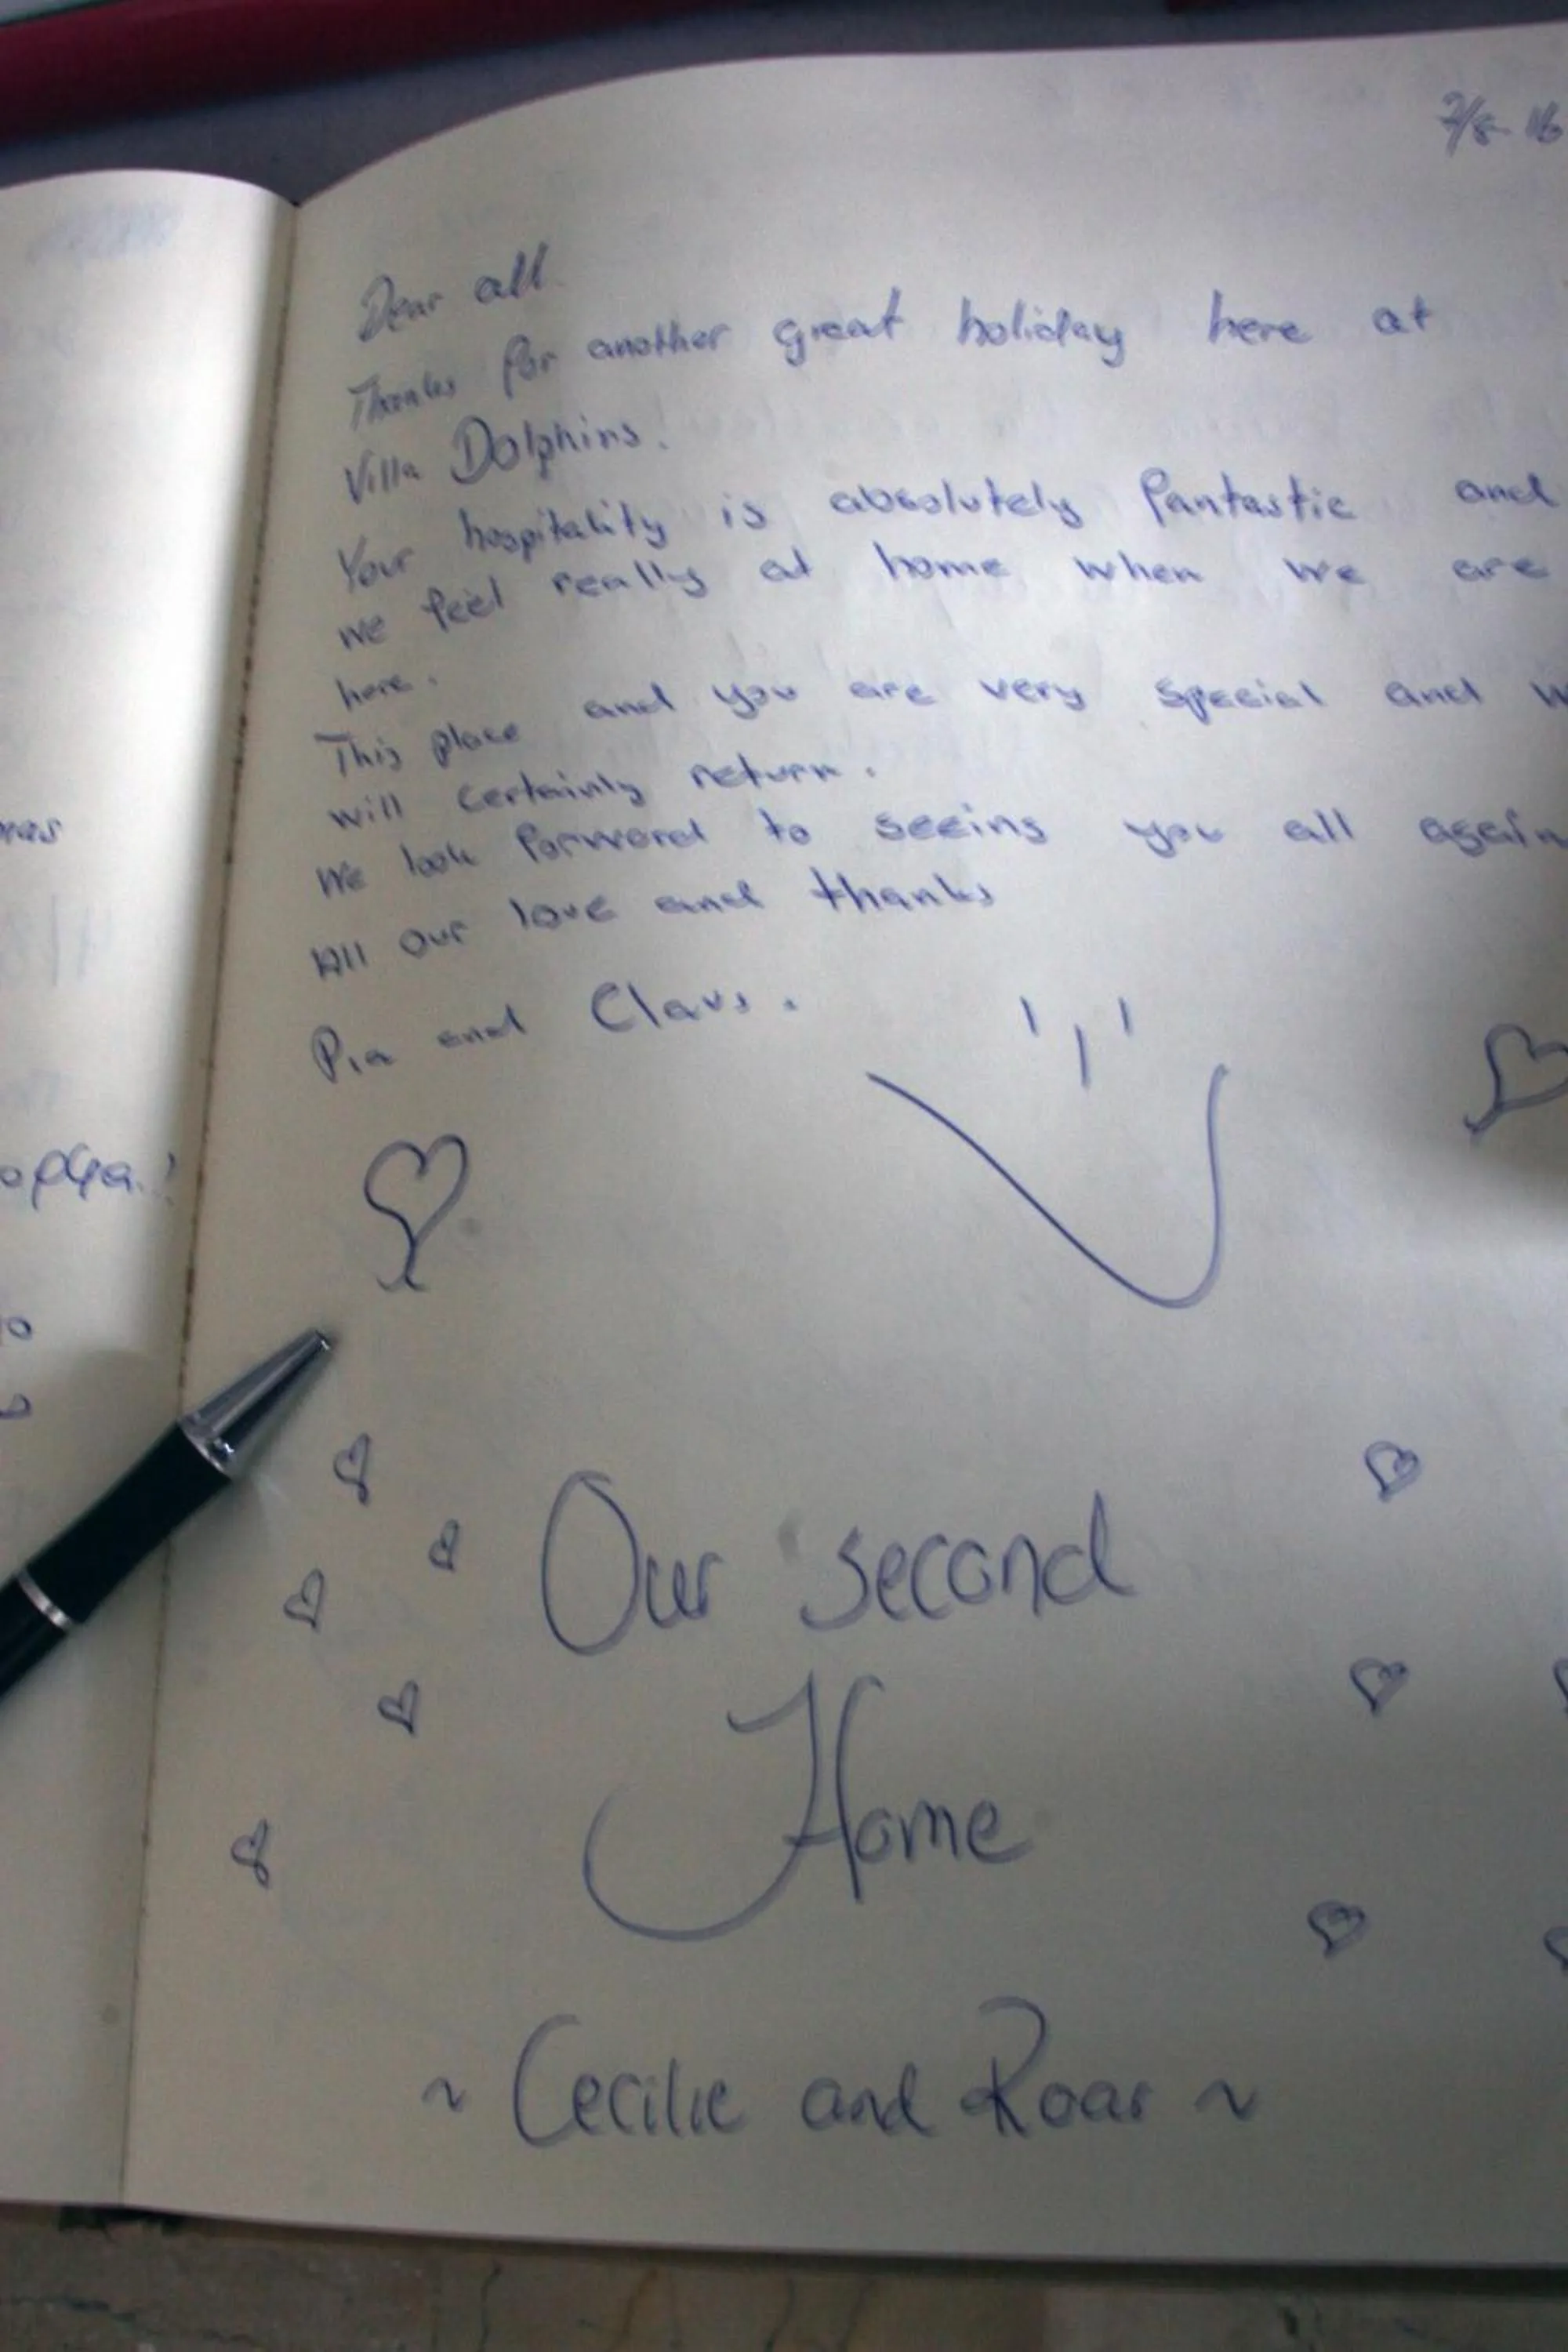 mas
opfga!
10
7/8-16
Dear all
Thanks for another great holiday here at
Villa Dolphins.
Your hospitality is absolutely fantastic and
we feel really at home when we are
here.
This place and you are very special and w
will certainly return.
We look forword to seeing you all again
All our love and thanks
Pia and Claus.
Our second
Home
~ Cecilie and Roar ~